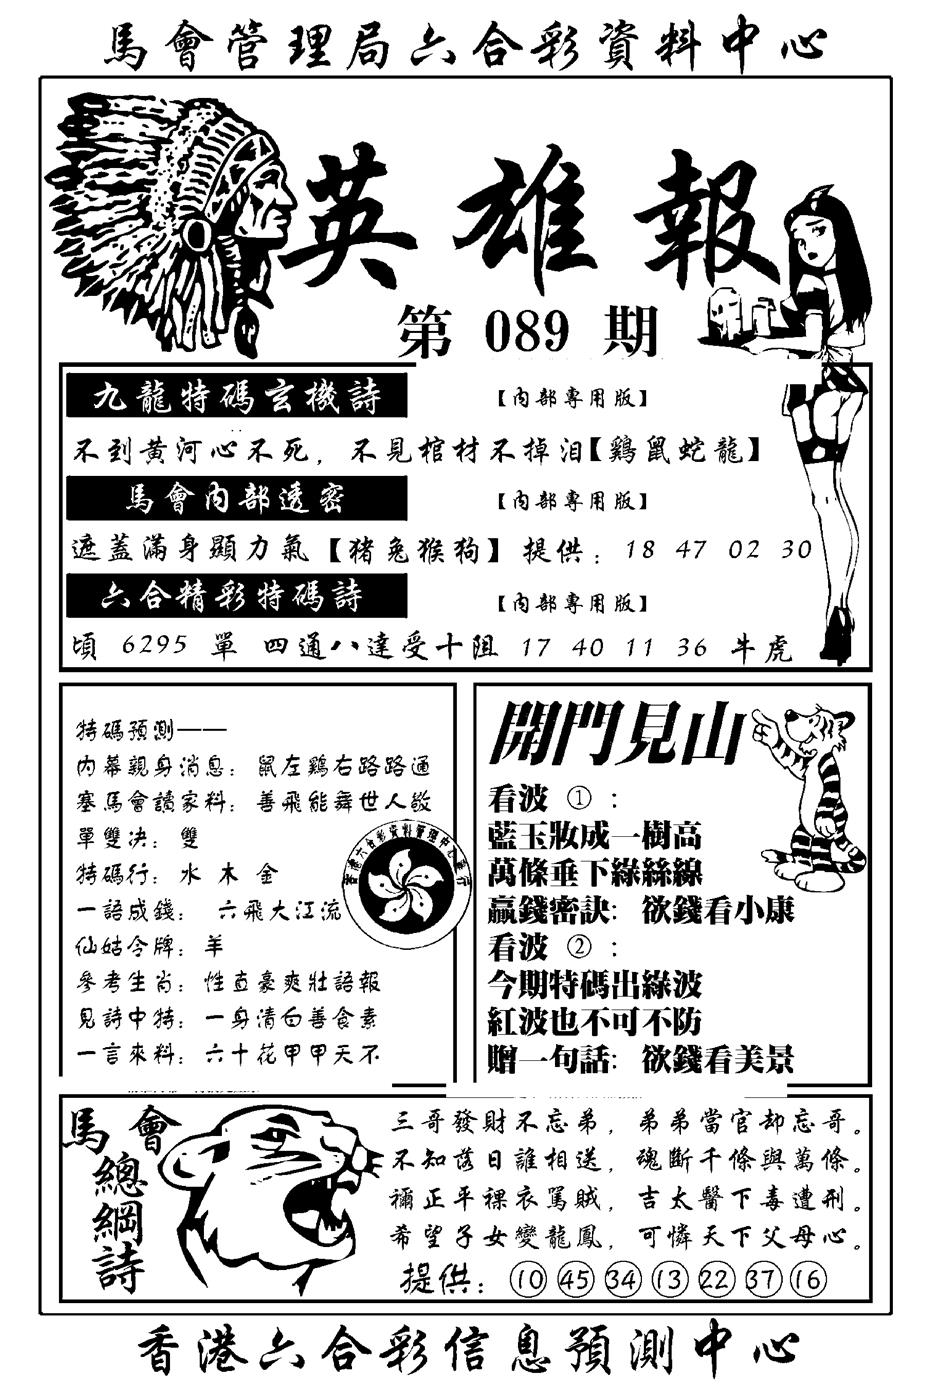 馬會管理局六合彩資料中心
英雄報
第 089 期
九龍特碼玄機詩 【內部專用版】
不到黄河心不死，不見棺材不掉泪【鷄鼠蛇龍】
馬會內部透密 【內部專用版】
遮蓋滿身顯力氣【猪兔猴狗】提供：18 47 02 30
六合精彩特碼詩 【內部專用版】
頃 6295 單 四通八達受十阻 17 40 11 36 牛虎
特碼預測——
内幕親身消息：鼠左鷄右路路通
塞馬會讀家料：善飛能舞世人敬
單雙决：雙
特碼行：水 木 金
一語成錢：六飛大江流
仙姑令牌：羊
參考生肖：性直豪爽壯語報
見詩中特：一身清白善食素
一言來料：六十花甲甲天不
香港六合彩資料管理中心發行
開門見山
看波 ①：
藍玉妝成一樹高
萬條垂下綠絲線
贏錢密訣：欲錢看小康
看波 ②：
今期特碼出綠波
紅波也不可不防
贈一句話：欲錢看美景
馬會
總綱詩
三哥發財不忘弟，弟弟當官却忘哥。
不知落日誰相送，魂斷千條與萬條。
禰正平裸衣駡賊，吉太醫下毒遭刑。
希望子女變龍鳳，可憐天下父母心。
提供：⑩ ㊺ ㉞ ⑬ ㉒ ㊲ ⑯
香港六合彩信息預測中心